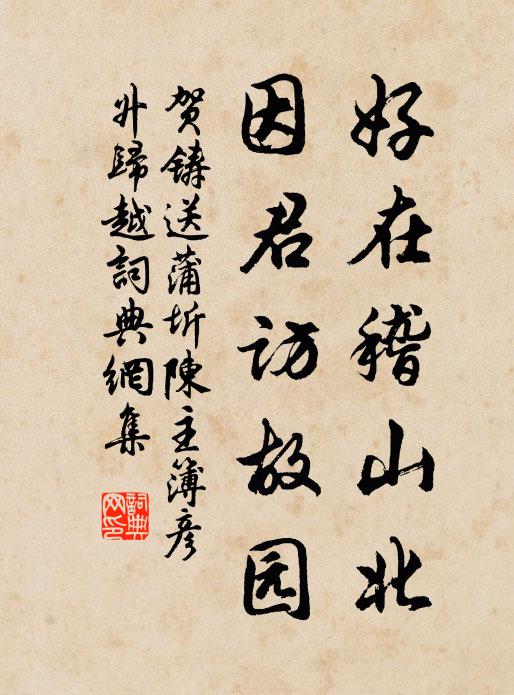 好在稽山北
因君访故园
贺铸送蒲圻陳主簿彦
升歸越詞典網集
詞典网印